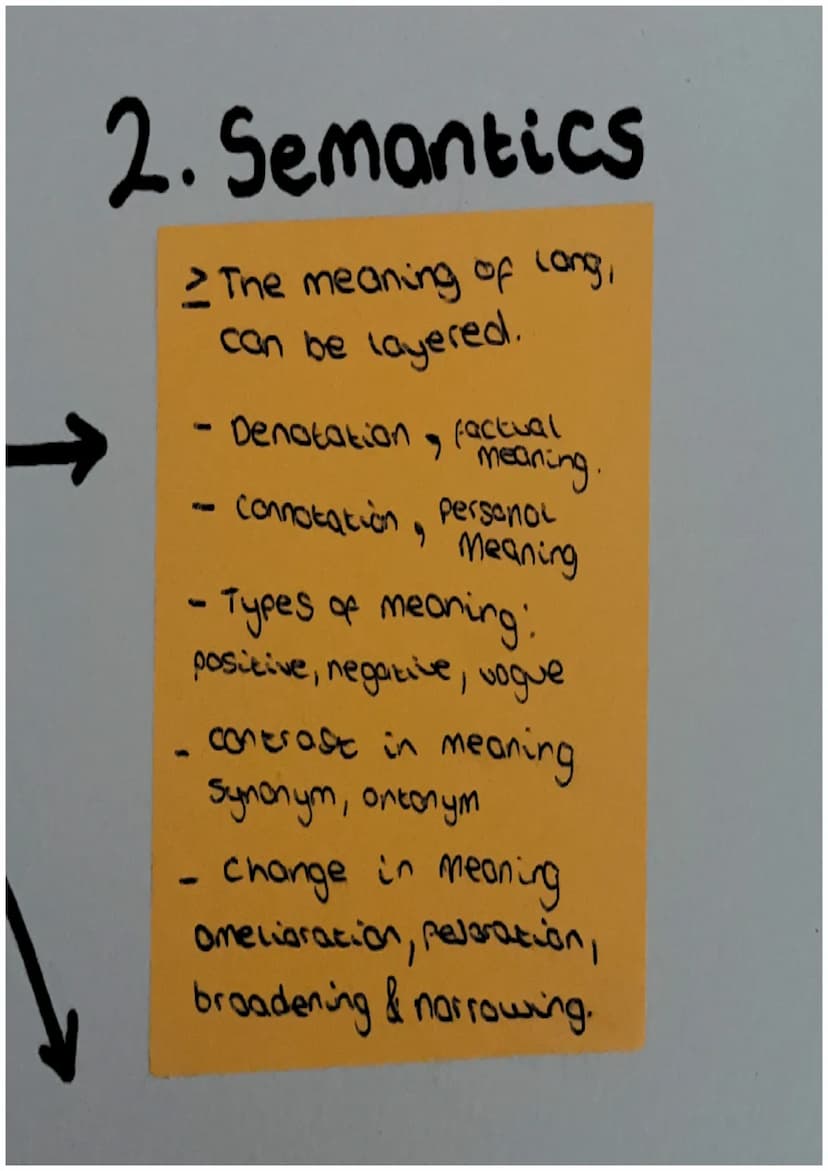 2. Semantics
> The meaning of lang,
can be layered.
- Denotation, factual
meaning.
- connotation, personal
meaning
- Types of meaning:
positive, negative, vague
- contrast in meaning
synonym, antonym
- change in meaning
amelioration, pejoration,
broadening & narrowing.